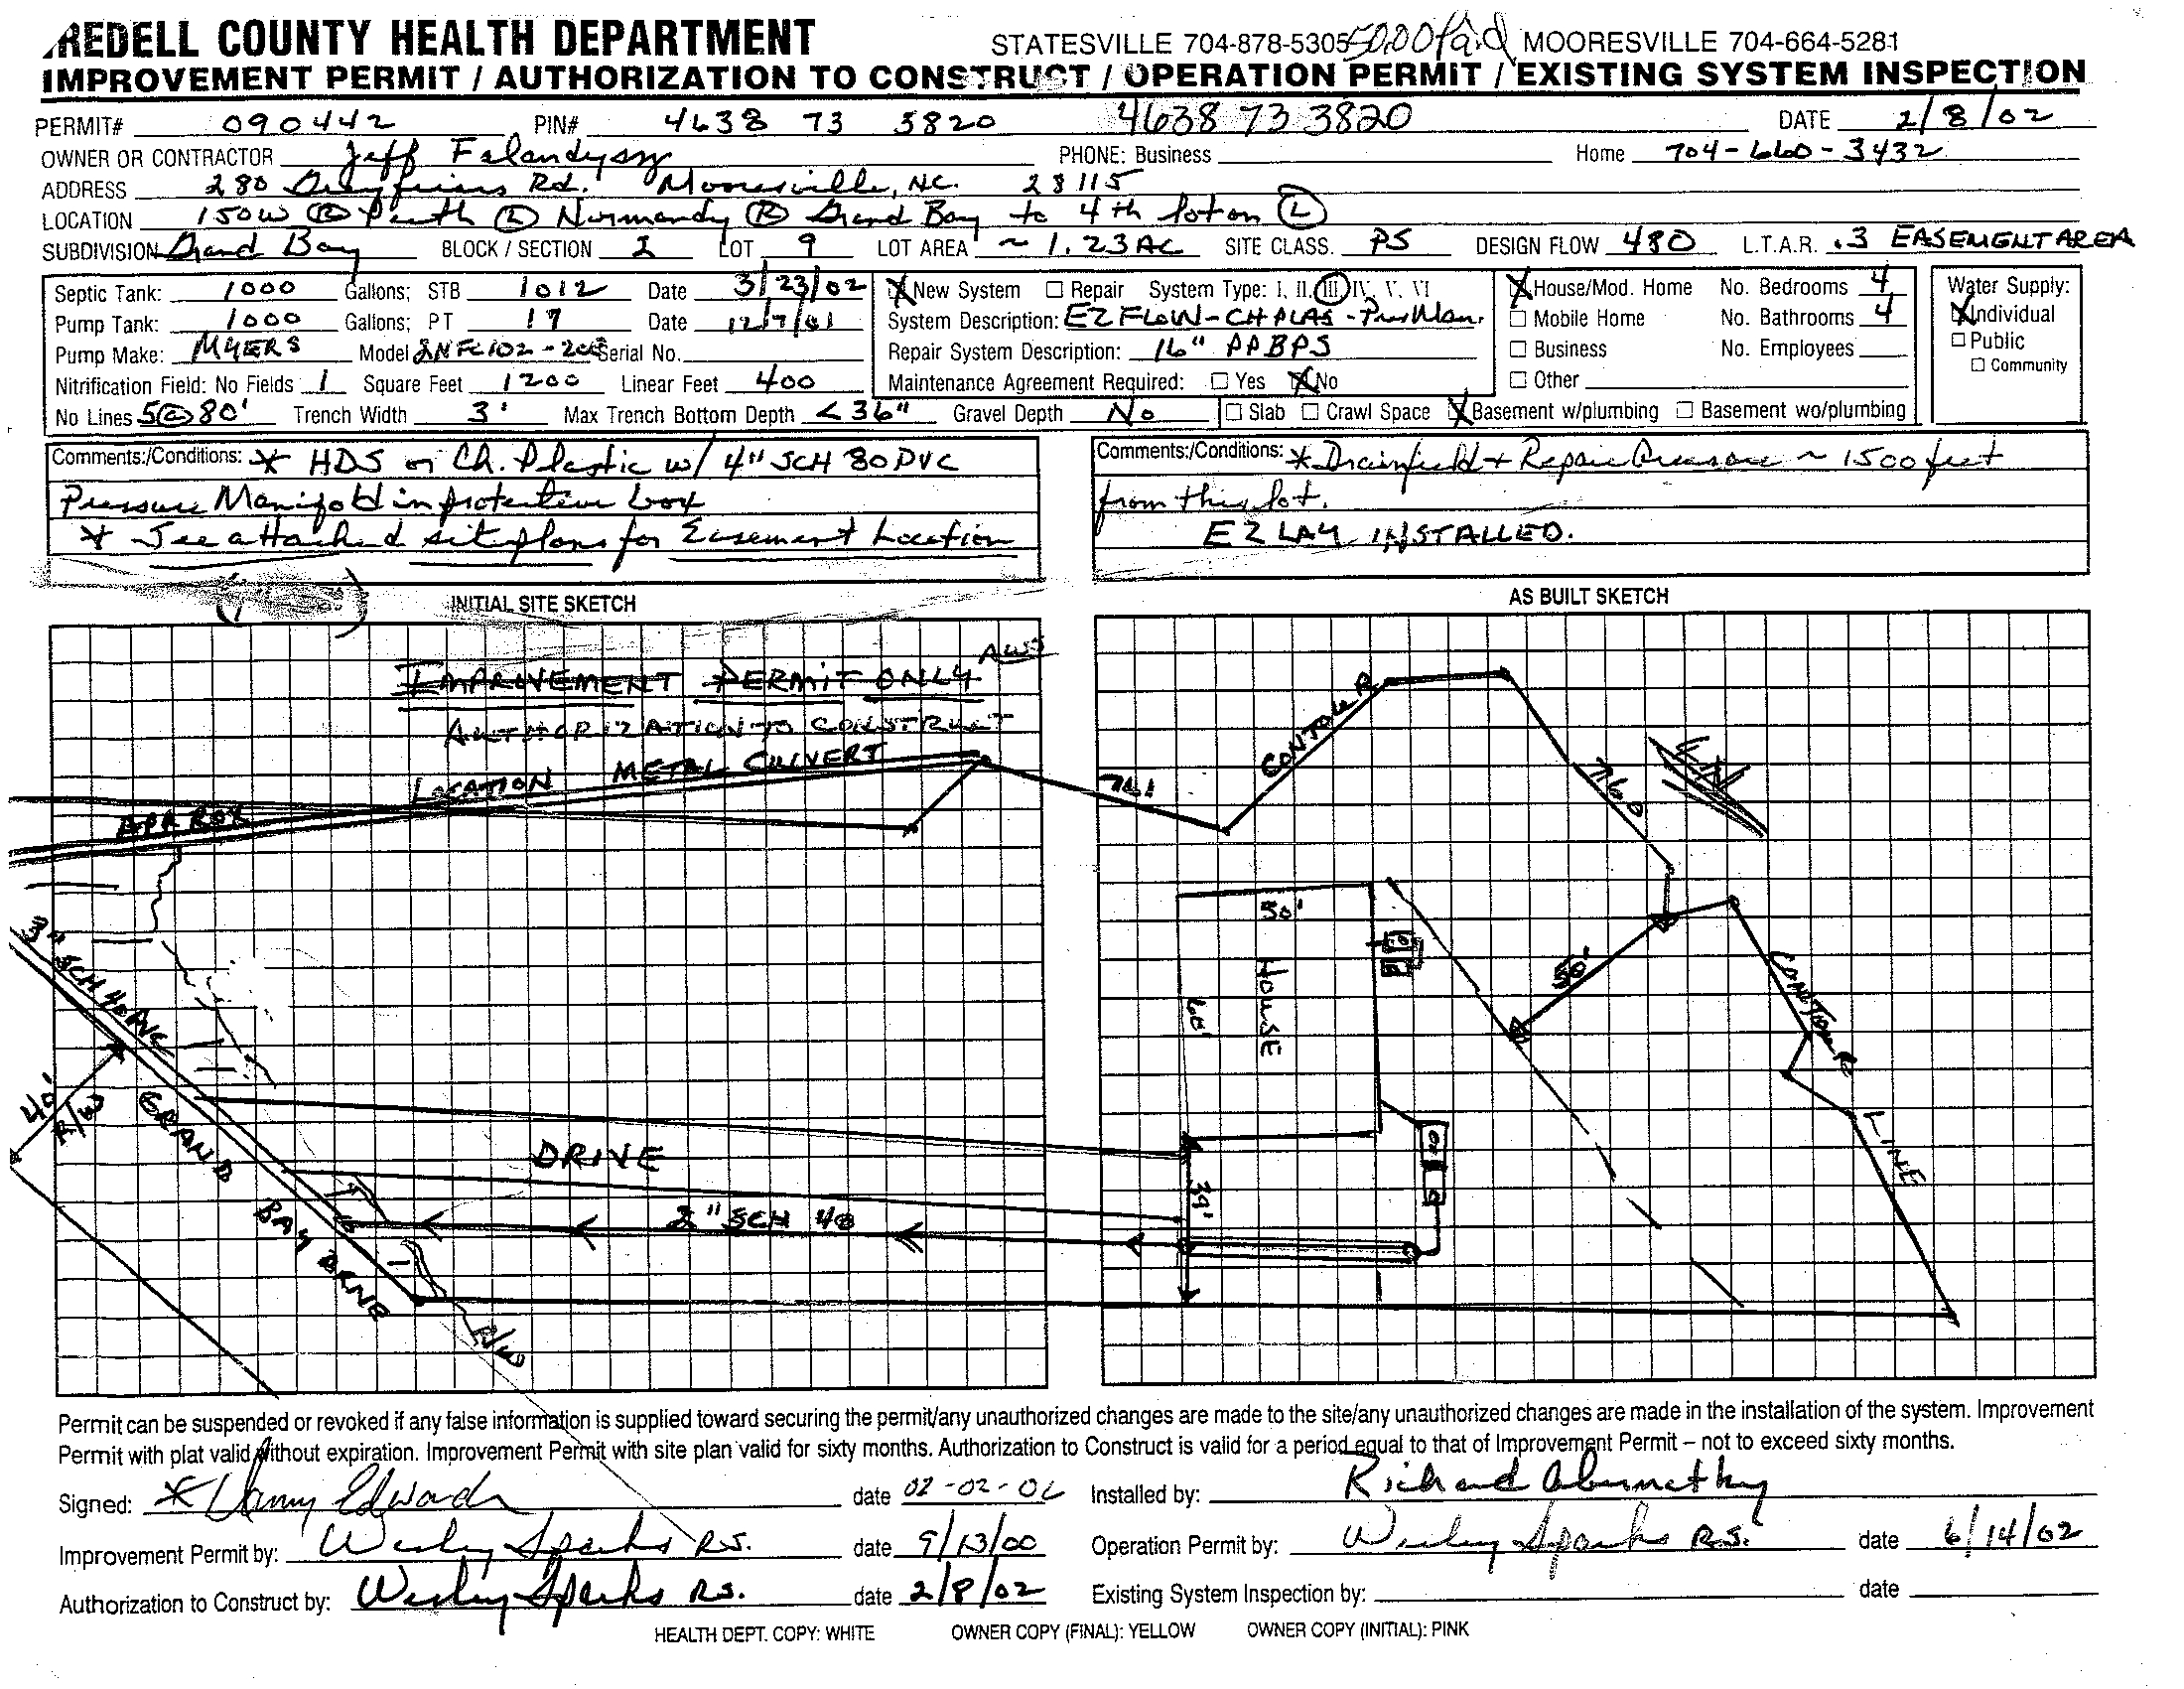 IREDELL COUNTY HEALTH DEPARTMENT STATESVILLE 704-878-5305 50.00 paid MOORESVILLE 704-664-5281
IMPROVEMENT PERMIT / AUTHORIZATION TO CONSTRUCT / OPERATION PERMIT / EXISTING SYSTEM INSPECTION
PERMIT# 090442 PIN# 4638 73 3820 4638 73 3820 DATE 2/8/02
OWNER OR CONTRACTOR Jeff Falandysz PHONE: Business Home 704-660-3432
ADDRESS 280 Rd. Mooresville, NC. 28115
LOCATION 150W (R) Perth (L) Normandy (R) Grand Bay to 4th lot on (L)
SUBDIVISION Grand Bay BLOCK / SECTION 2 LOT 9 LOT AREA ~ 1.23 AC SITE CLASS. PS DESIGN FLOW 480 L.T.A.R. .3 EASEMENT AREA
Septic Tank: 1000 Gallons; STB 1012 Date 3/23/02
Pump Tank: 1000 Gallons; PT 17 Date 12/7/01
Pump Make: MYERS Model Serial No.
Nitrification Field: No Fields 1 Square Feet 1200 Linear Feet 400
No Lines 5@80' Trench Width 3' Max Trench Bottom Depth < 36" Gravel Depth No
X New System Repair System Type: I, II, III, IV, V, VI
System Description: EZ FLOW-CH PLAS-Pres Man.
Repair System Description: 16" PPBPS
Maintenance Agreement Required: Yes X No
Slab Crawl Space X Basement w/plumbing Basement wo/plumbing
X House/Mod. Home No. Bedrooms 4
Mobile Home No. Bathrooms 4
Business No. Employees
Other
Water Supply:
X Individual
Public
Community
Comments:/Conditions: * HDS or Ch. Plastic w/ 4" SCH 80 PVC
Pressure Manifold in protective box
* See attached site plans for Easement Location
Comments:/Conditions: * Drainfield + Repair Areas are ~ 1500 feet
from this lot.
EZ LAY INSTALLED.
INITIAL SITE SKETCH
AS BUILT SKETCH
IMPROVEMENT PERMIT ONLY AWS
AUTHORIZATION TO CONSTRUCT
APPROX LOCATION METAL CULVERT
761
CONTOUR
760
50'
HOUSE
60'
50'
CONTOUR
LINE
3" SCH 40 PVC
40' R/W
GRAND BAY DRIVE
DRIVE
39'
2" SCH 40
R/W
Permit can be suspended or revoked if any false information is supplied toward securing the permit/any unauthorized changes are made to the site/any unauthorized changes are made in the installation of the system. Improvement
Permit with plat valid without expiration. Improvement Permit with site plan valid for sixty months. Authorization to Construct is valid for a period equal to that of Improvement Permit – not to exceed sixty months.
Signed: * Danny Edwards date 02-02-02 Installed by: Richard Abernathy
Improvement Permit by: Wesley Sparks R.S. date 9/13/00 Operation Permit by: Wesley Sparks R.S. date 6/14/02
Authorization to Construct by: Wesley Sparks R.S. date 2/8/02 Existing System Inspection by: date
HEALTH DEPT. COPY: WHITE OWNER COPY (FINAL): YELLOW OWNER COPY (INITIAL): PINK